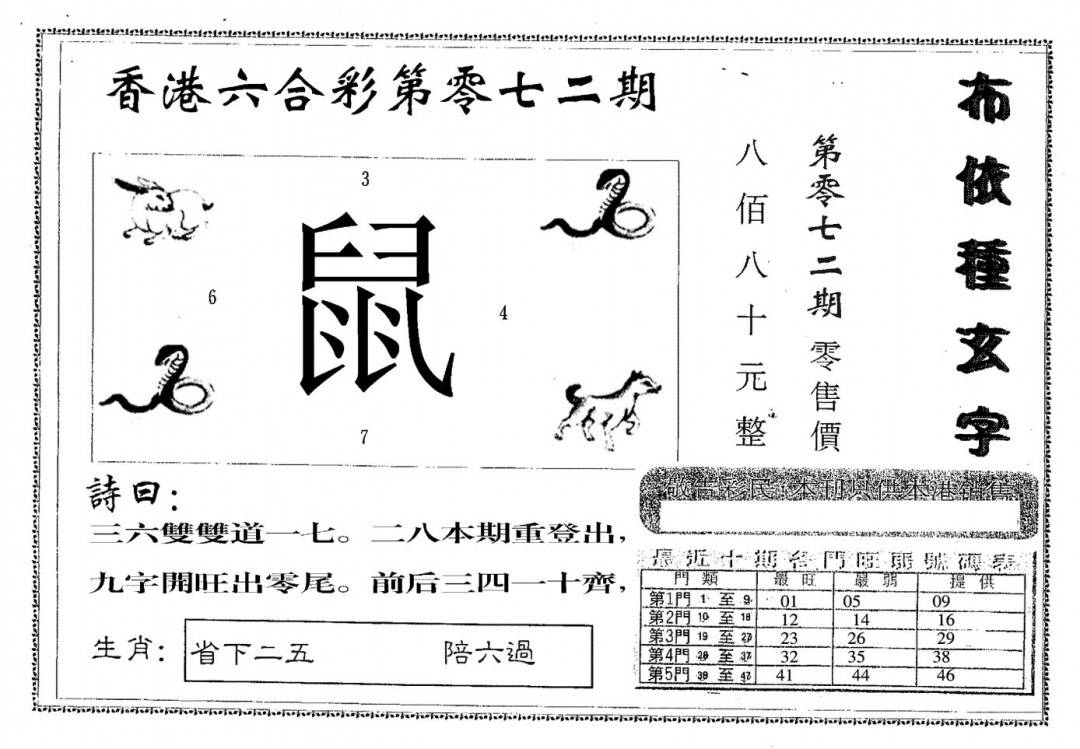 香港六合彩第零七二期
布依種玄字
第零七二期零售價
八佰八十元整
3
鼠
6
4
7
詩曰：
三六雙雙道一七。二八本期重登出，
九字開旺出零尾。前后三四一十齊，
生肖：省下二五 陪六過
敬告彩民：本刊只供本港銷售
最近十期各門旺弱號碼表
門類 最旺 最弱 提供
第1門 1 至 9 01 05 09
第2門 10 至 18 12 14 16
第3門 19 至 27 23 26 29
第4門 28 至 37 32 35 38
第5門 38 至 47 41 44 46